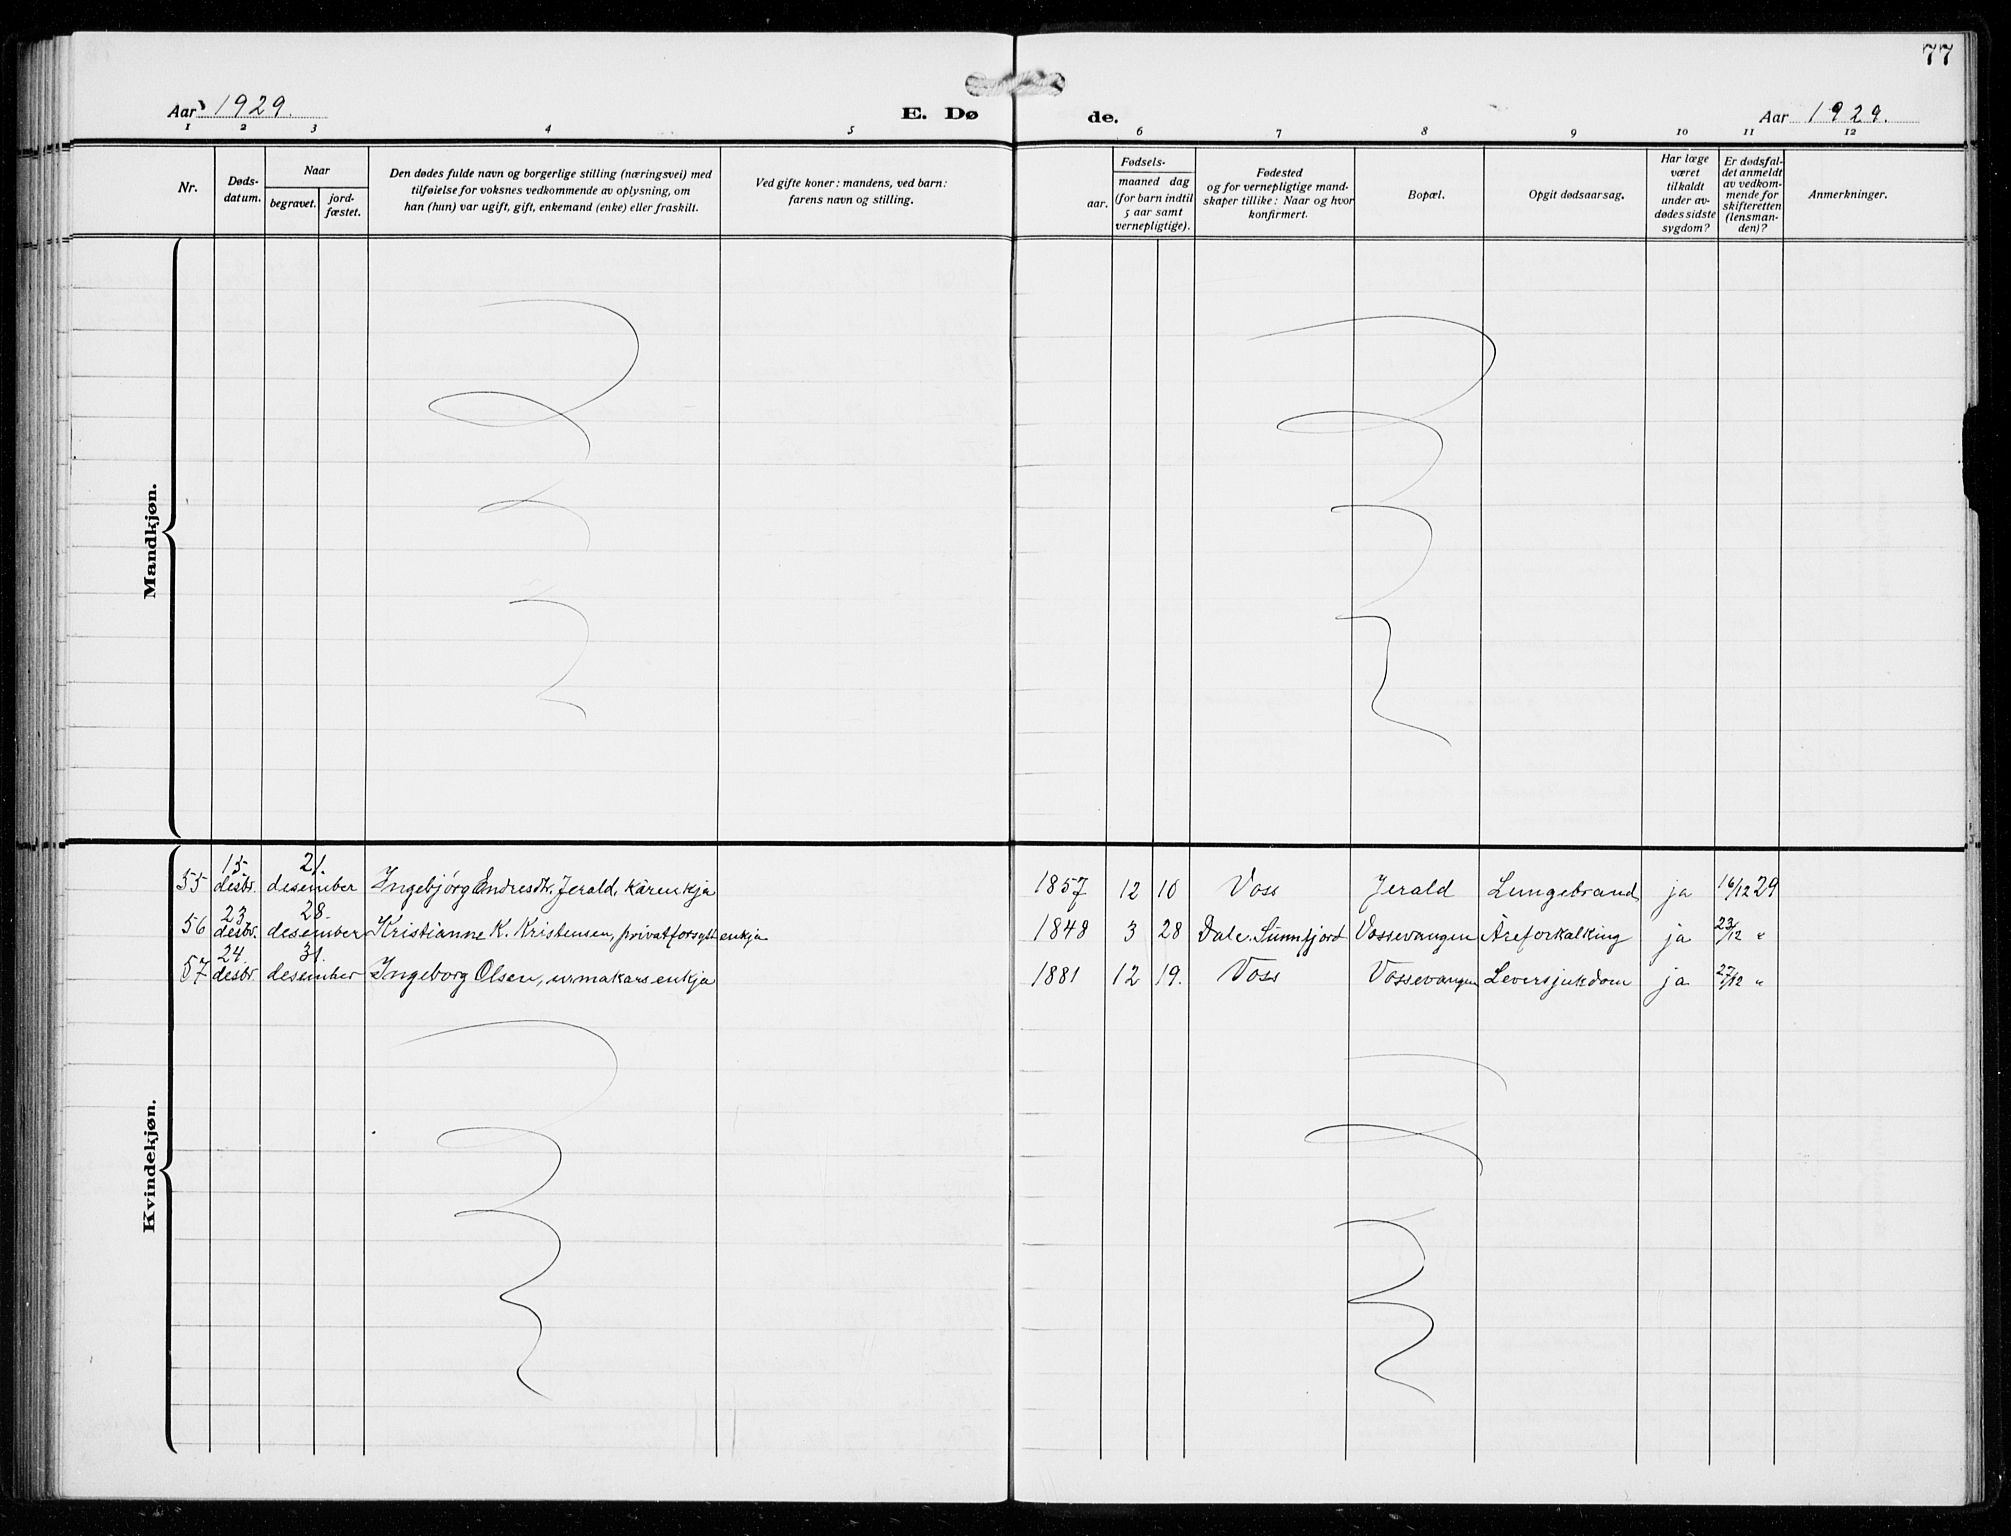 77
Aar 1929.
E. Dø
de.
Aar 1929.
1 2 3 4 5 6 7 8 9 10 11 12
Nr.
Døds-
datum.
Naar
begravet.
jord-
fæstet.
Den dødes fulde navn og borgerlige stilling (næringsvei) med
tilføielse for voksnes vedkommende av oplysning, om
han (hun) var ugift, gift, enkemand (enke) eller fraskilt.
Ved gifte koner: mandens, ved barn:
farens navn og stilling.
Fødsels-
aar.
maaned dag
(for barn indtil
5 aar samt
vernepligtige).
Fødested
og for vernepligtige mand-
skaper tillike: Naar og hvor
konfirmert.
Bopæl.
Opgit dødsaarsag.
Har læge
været
tilkaldt
under av-
dødes sidste
sygdom?
Er dødsfal-
det anmeldt
av vedkom-
mende for
skifteretten
(lensman-
den)?
Anmerkninger.
Mandkjøn.
Kvindekjøn.
15 21.
55 desbr. desember Ingebjørg Endresdtr. Jerald, kårenkja 1857 12 10 Voss Jerald Lungebrand ja 16/12 29
23 28
56 desbr. desember Kristianne K. Kristensen, privatforsytt enkja 1848 3 28 Dale, Sunnfjord Vossevangen Åreforkalking ja 23/12 "
24 31.
57 desbr. desember Ingeborg Olsen, urmakars enkja 1881 12 19. Voss Vossevangen Leversjukdom ja 27/12 "